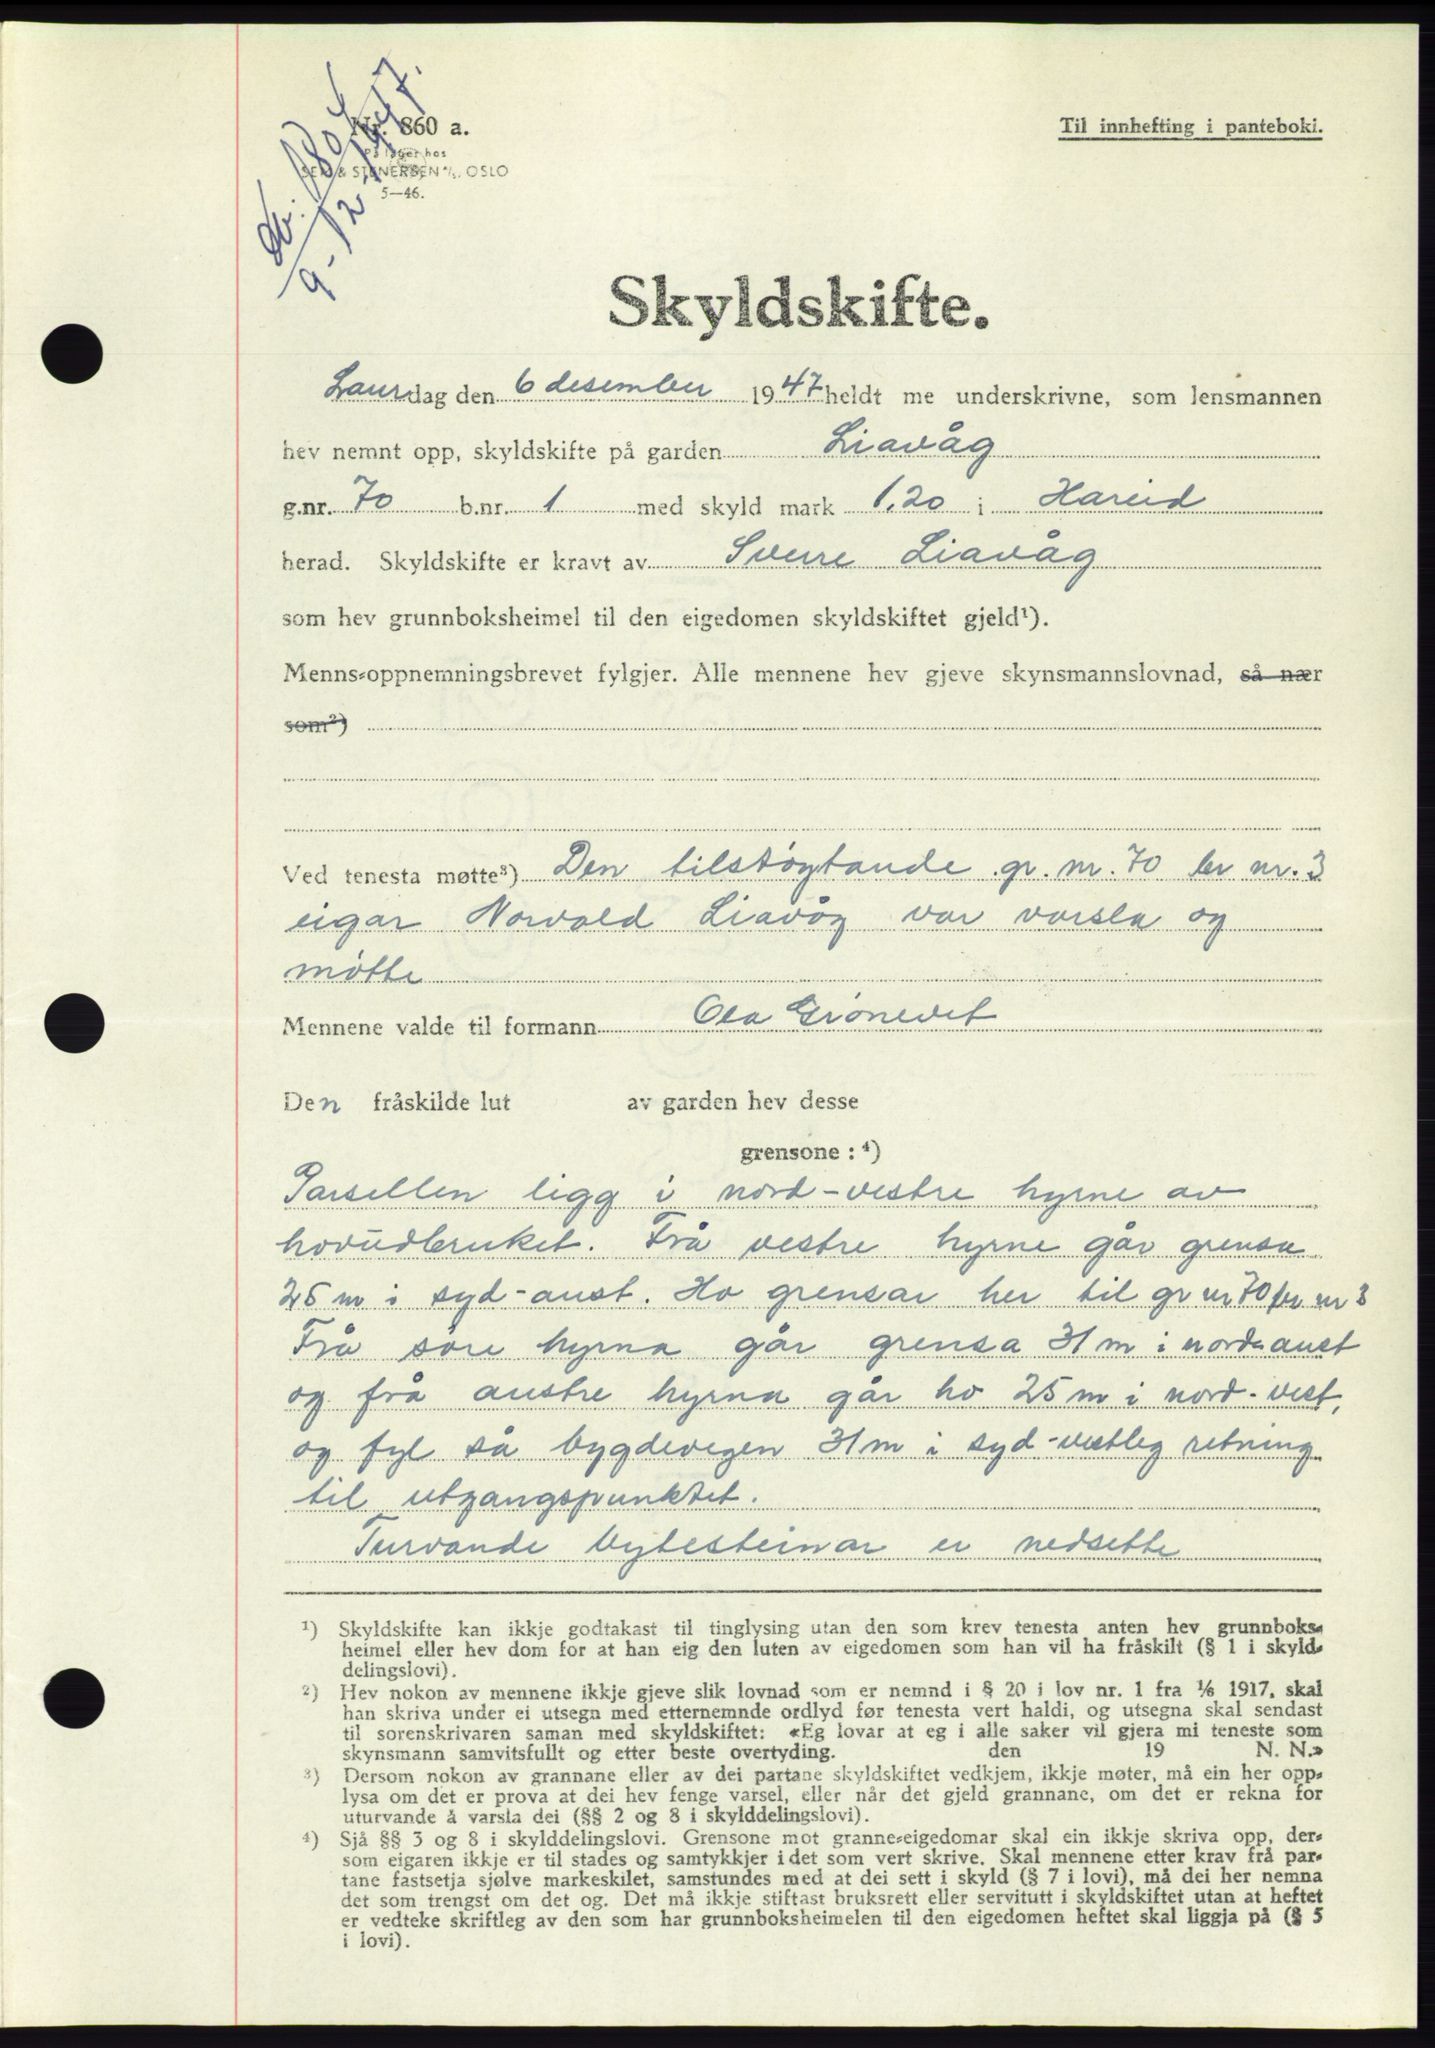 Db. 1804
9-12-1947.
Nr. 860 a.
På lager hos
SEM & STENERSEN A/S, OSLO
5—46.
Til innhefting i panteboki.
Skyldskifte.
Laurdag den 6 desember 1947 heldt me underskrivne, som lensmannen
hev nemnt opp, skyldskifte på garden Liavåg
g.nr. 70 b.nr. 1 med skyld mark 1,20 i Hareid
herad. Skyldskifte er kravt av Sverre Liavåg
som hev grunnboksheimel til den eigedomen skyldskiftet gjeld¹).
Menns-oppnemningsbrevet fylgjer. Alle mennene hev gjeve skynsmannslovnad, så nær
som²)
Ved tenesta møtte³) Den tilstøytande gr. nr. 70 br nr. 3
eigar Norvald Liavåg var varsla og
møtte
Mennene valde til formann Ola Grönevet
Den fråskilde lut av garden hev desse
grensone : ⁴)
Parsellen ligg i nord-vestre hyrne av
hovudbruket. Frå vestre hyrne går grensa
25 m i syd-aust. Ho grensar her til gr nr 70 br nr 3
Frå søre hyrna går grensa 31 m i nord-aust
og frå austre hyrna går ho 25 m i nord-vest,
og fyl så bygdevegen 31 m i syd-vestleg retning
til utgangspunktet.
Turvande bytesteinar er nedsette
¹) Skyldskifte kan ikkje godtakast til tinglysing utan den som krev tenesta anten hev grunnboks-
heimel eller hev dom for at han eig den luten av eigedomen som han vil ha fråskilt (§ 1 i skyld-
delingslovi).
²) Hev nokon av mennene ikkje gjeve slik lovnad som er nemnd i § 20 i lov nr. 1 fra ¹/₆ 1917, skal
han skriva under ei utsegn med etternemnde ordlyd før tenesta vert haldi, og utsegna skal sendast
til sorenskrivaren saman med skyldskiftet: «Eg lovar at eg i alle saker vil gjera mi teneste som
skynsmann samvitsfullt og etter beste overtyding. den 19 N. N.»
³) Dersom nokon av grannane eller av dei partane skyldskiftet vedkjem, ikkje møter, må ein her opp-
lysa om det er prova at dei hev fenge varsel, eller når det gjeld grannane, om det er rekna for
uturvande å varsla dei (§§ 2 og 8 i skylddelingslovi).
⁴) Sjå §§ 3 og 8 i skylddelingslovi. Grensone mot granne-eigedomar skal ein ikkje skriva opp, der-
som eigaren ikkje er til stades og samtykkjer i det som vert skrive. Skal mennene etter krav frå par-
tane fastsetja sjølve markeskilet, samstundes med at dei sett i skyld (§ 7 i lovi), må dei her nemna
det som trengst om det og. Det må ikkje stiftast bruksrett eller servitutt i skyldskiftet utan at heftet
er vedteke skriftleg av den som har grunnboksheimelen til den eigedomen heftet skal liggja på (§ 5
i lovi).